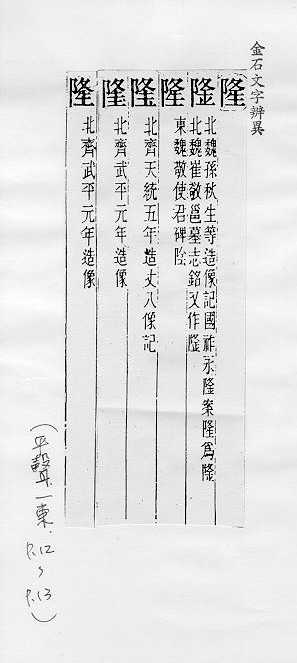 金石文字辨異
隆
北魏孫秋生等造像記國祚永隆案隆為隆
隆
北魏崔敬邕墓志銘又作隆
隆
東魏敬使君碑隆
隆
北齊天統五年造丈八像記
隆
北齊武平元年造像
隆
北齊武平元年造像
(平聲一東.
P.12
P.13)